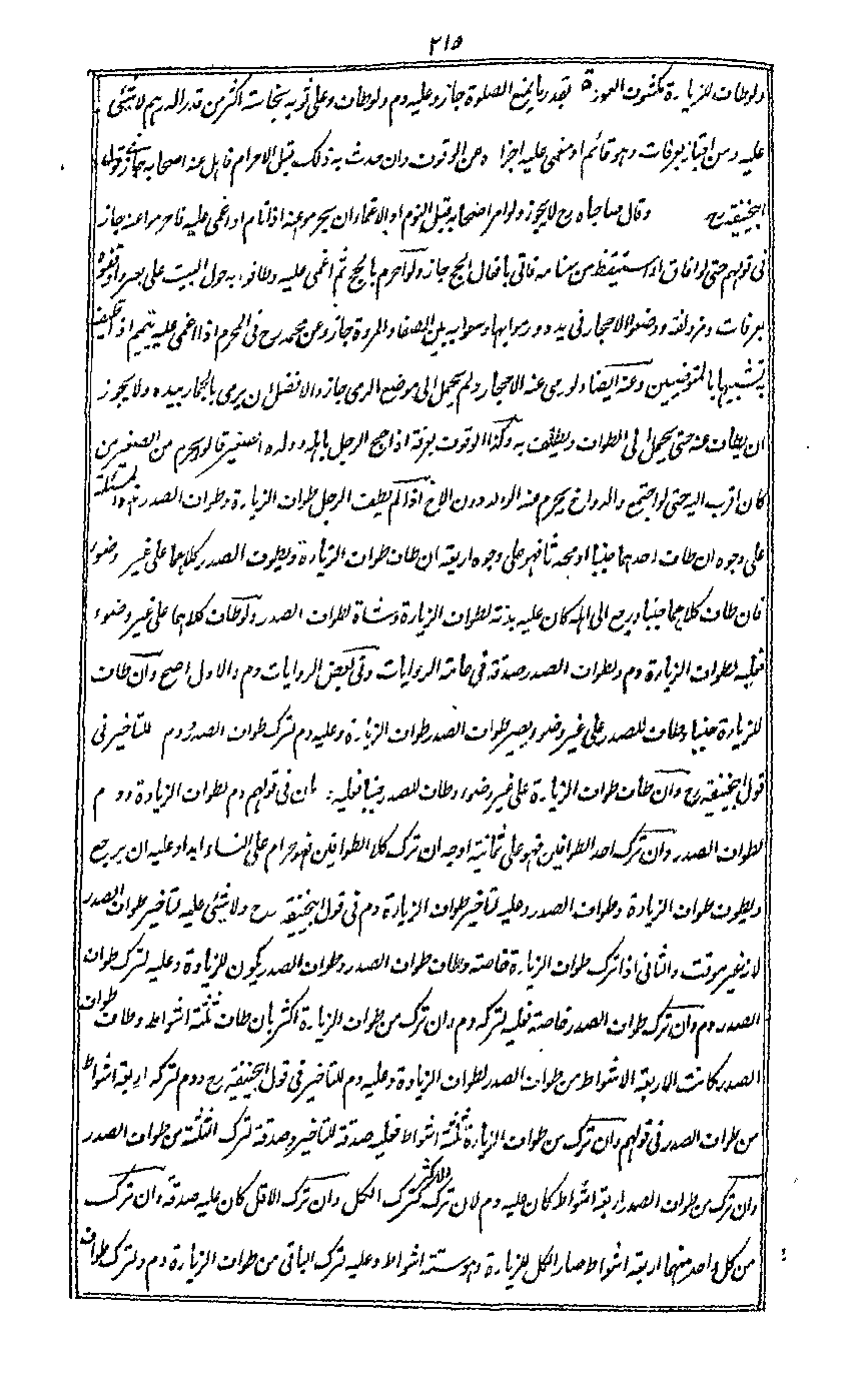 ٢١٥
ولو طاف للزيارة مكشوف العورة بقدر ما يمنع الصلوة جاز وعليه دم ولو طاف وعلى ثوبه نجاسة اكثر من قدر الدرهم لا شئ
عليه ومن اجتاز بعرفات وهو نائم او مغمى عليه اجزا عن الوقوف وان حدث به ذلك قبل الاحرام فاهل عنه اصحابه جاز في قول
ابيحنيفة رح وقال صاحباه رح لا يجوز ولو امر اصحابه قبل النوم او الاغماء ان يحرموا عنه اذا نام او اغمى عليه فاحرموا عنه جاز
فى قولهم حتى لو افاق او استيقظ من منامه فاتى بافعال الحج جاز ولو احرم بالحج ثم اغمى عليه وطافوا به حول البيت على بعير واوقفوه
بعرفات ومزدلفة ووضعوا الاحجار فى يده ورموا بها وسعوا به بين الصفا والمروة جاز وعن محمد رح فى المحرم اذا اغمى عليه ييمم اذا طيف
به تشبيها بالمتوضيين وعنه ايضا ولو رمى عنه الاحجار ولم يحمل الى موضع الرمى جاز والافضل ان يرمى بالجمار بيده ولا يجوز
ان يطاف عنه حتى يحمل الى الطواف ويطاف به وكذا الوقوف بعرفة اذا حج الرجل باهله وولده الصغير قالوا يحرم من الصغير من
كان اقرب اليه حتى لو اجتمع والد واخ يحرم عنه الوالد دون الاخ اذا لم يطف الرجل طواف الزيارة وطواف الصدر فهذه المسئلة
على وجوه ان طاف احدهما جنبا او محدثا فهو على وجوه اربعة ان طاف طواف الزيارة وطواف الصدر كلاهما على غير وضوء
فان طاف كلاهما جنبا ورجع الى اهله كان عليه بدنة لطواف الزيارة وشاة لطواف الصدر ولو طاف كلاهما على غير وضوء
فعليه لطواف الزيارة دم ولطواف الصدر صدقة فى عامة الروايات وفى بعض الروايات دم والاول اصح وان طاف
للزيارة جنبا وطاف للصدر على غير وضوء ويصير طواف الصدر طواف الزيارة وعليه دم لترك طواف الصدر ودم للتاخير فى
قول ابيحنيفة رح وان طاف طواف الزيارة على غير وضوء وطاف للصدر جنبا فعليه دمان فى قولهم دم لطواف الزيادة ودم
لطواف الصدر وان ترك احد الطوافين فهو على ثمانية اوجه ان ترك كلا الطوافين فهو حرام على النساء ابدا وعليه ان يرجع
ويطوف طواف الزيادة وطواف الصدر وعليه لتاخير طواف الزيارة دم فى قول ابيحنيفة رح ولا شئ عليه لتاخير طواف الصدر
لانه غير موقت والثانى اذا ترك طواف الزيارة خاصة وطاف طواف الصدر وطواف الصدر يكون للزيادة وعليه لترك طواف
الصدر دم وان ترك طواف الصدر خاصة فعليه لتركه دم وان ترك من طواف الزيارة اكثر بان طاف ثلثة اشواط وطاف طواف
الصدر كانت الاربعة الاشواط من طواف الصدر لطواف الزيادة وعليه دم للتاخير فى قول ابيحنيفة رح ودم لتركه اربعة اشواط
من طواف الصدر فى قولهم وان ترك من طواف الزيارة ثلثة اشواط فعليه صدقة للتاخير وصدقة لترك الثلثة من طواف الصدر
وان ترك من طواف الصدر اربعة اشواط كان عليه دم لان ترك الاكثر كترك الكل وان ترك الاقل كان عليه صدقة وان ترك
من كل واحد منهما اربعة اشواط صار الكل للزيارة وهو ستة اشواط وعليه لترك الباقى من طواف الزيارة دم ولترك طواف